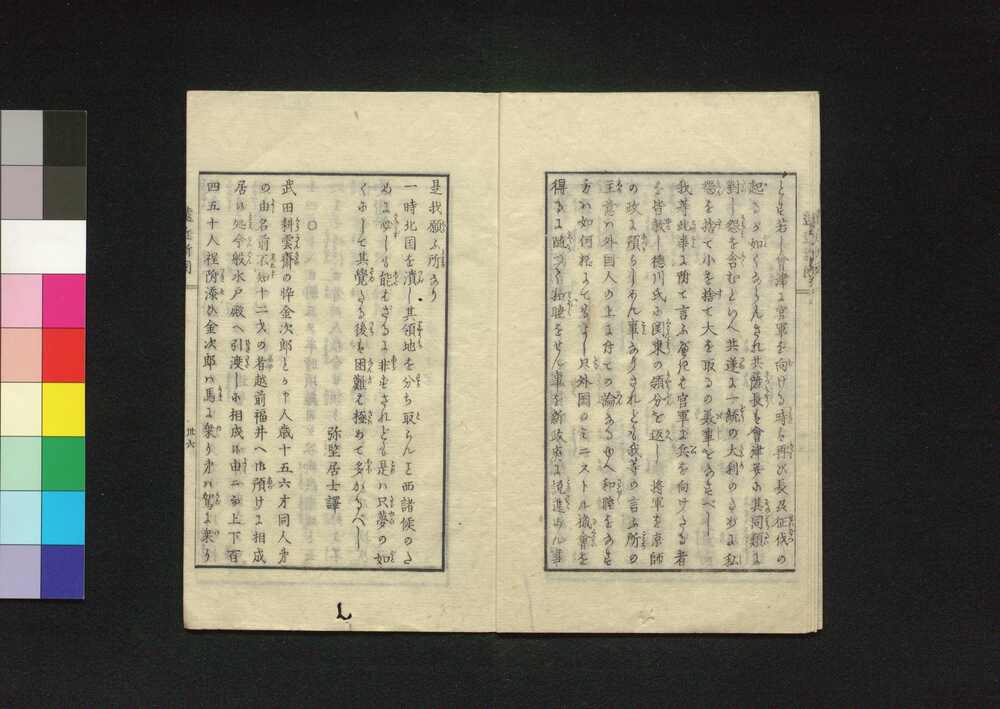 とも若し會津に官軍を向ける時を再ひ長及征伐の
起さゝ如くあらんされ共薩長も會津等に其同類に
對し怨を含むといへ共遂に一統の大利のために私
怨を捨て小を捨て大を取るの義事をあすべし
我等此事に附て言ふ
官軍に兵を向けたる者
を皆散し徳川氏に関東の領分を返し将軍を京師
の政に預らしめん事ありされども我等の言ふ所の
主意ハ外国人の上に付ての論あるゆへ和睦をあせ
方ハ如何様にてもよし只外国のミニストル機會を
得るに随つて和睦をせん事を新政府に説進めん事
是我願ふ所あり
一時北国を潰し其領地を分ち取らんと西諸侯のた
めに少しも能はざるに非ずされども是ハ只夢の如
くにして其覺たる後を困難を極めて多かるべし
弥堅居士譯
○
武田耕雲齋の悴金次郎と
人歳十五六才同人弟
の由名前不知十二才の者越前福井へ御預けに相成
居候処今般水戸殿へ引渡しに相成候由ニ而上下百
四五十人程附添ひ金次郎ハ馬に乗り弟ハ駕に乗り
遠近新聞
廿六